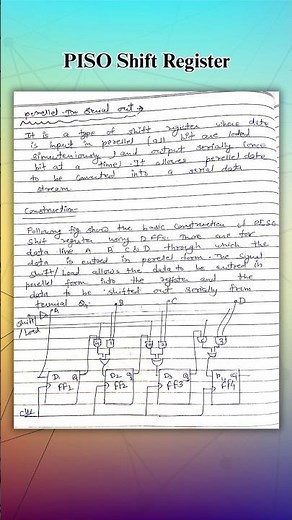 PISO Shift Register
Parellel-In Serial out →
It Is a type of shift register where data
is input in parellel (all bit are loded
simenteniously) and output serially (one
bit at a time). It allows parellel data
to be converted into a serial data
stream.
Construction-
Following fig show the basic construction of PISO
Shift register using D FFs. There are for
data line A B C & D through which the
data is entred in parellel form. The signal
shift/Load allows the data to be entred in
parellel form into the register and the
data to be shifted out serially from
terminal Q4
A B C D
Shift/
Load
D1 Q D2 Q D3 Q D4 Q
FF1 FF2 FF3 FF4
clk